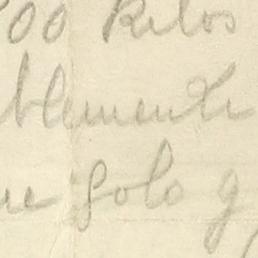 00 Kilos
blemente
solo y